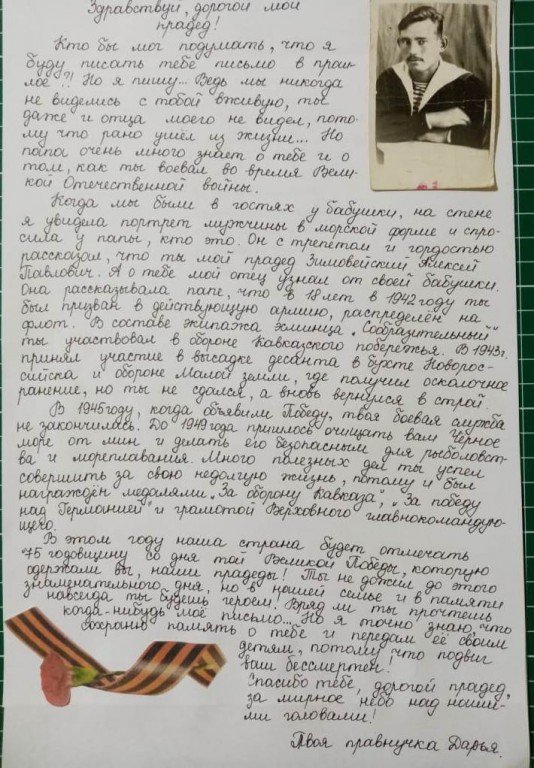 Здравствуй, дорогой мой
прадед!
Кто бы мог подумать, что я
буду писать тебе письмо в прош-
лое?! Но я пишу... Ведь мы никогда
не виделись с тобой вживую, ты
даже и отца моего не видел, пото-
му что рано ушёл из жизни... Но
папа очень много знает о тебе и о
том, как ты воевал во время Вели-
кой Отечественной войны.
Когда мы были в гостях у бабушки, на стене
я увидела портрет мужчины в морской форме и спро-
сила у папы, кто это. Он с трепетом и гордостью
рассказал, что ты мой прадед Зимовейский Алексей
Павлович. А о тебе мой отец узнал от своей бабушки.
Она рассказывала папе, что в 18 лет в 1942 году ты
был призван в действующую армию, распределён на
флот. В составе экипажа эсминца „Сообразительный"
ты участвовал в обороне Кавказского побережья. В 1943г.
принял участие в высадке десанта в бухте Новорос-
сийска и обороне Малой земли, где получил осколочное
ранение, но ты не сдался, а вновь вернулся в строй.
В 1945 году, когда объявили Победу, твоя боевая служба
не закончилась. До 1949 года пришлось очищать вам Чёрное
море от мин и делать его безопасным для рыболовст-
ва и мореплавания. Много полезных дел ты успел
совершить за свою недолгую жизнь, потому и был
награждён медалями „За оборону Кавказа", „За победу
над Германией" и грамотой Верховного главнокомандую-
щего.
В этом году наша страна будет отмечать
75 годовщину со дня той Великой Победы, которую
одержали вы, наши прадеды! Ты не дожил до этого
знаменательного дня, но в нашей семье и в памяти
навсегда ты будешь героем! Вряд ли ты прочтёшь
когда-нибудь моё письмо... Но я точно знаю, что
сохраню память о тебе и передам её своим
детям, потому что подвиг
ваш бессмертен!
Спасибо тебе, дорогой прадед,
за мирное небо над наши-
ми головами!
Твоя правнучка Дарья.